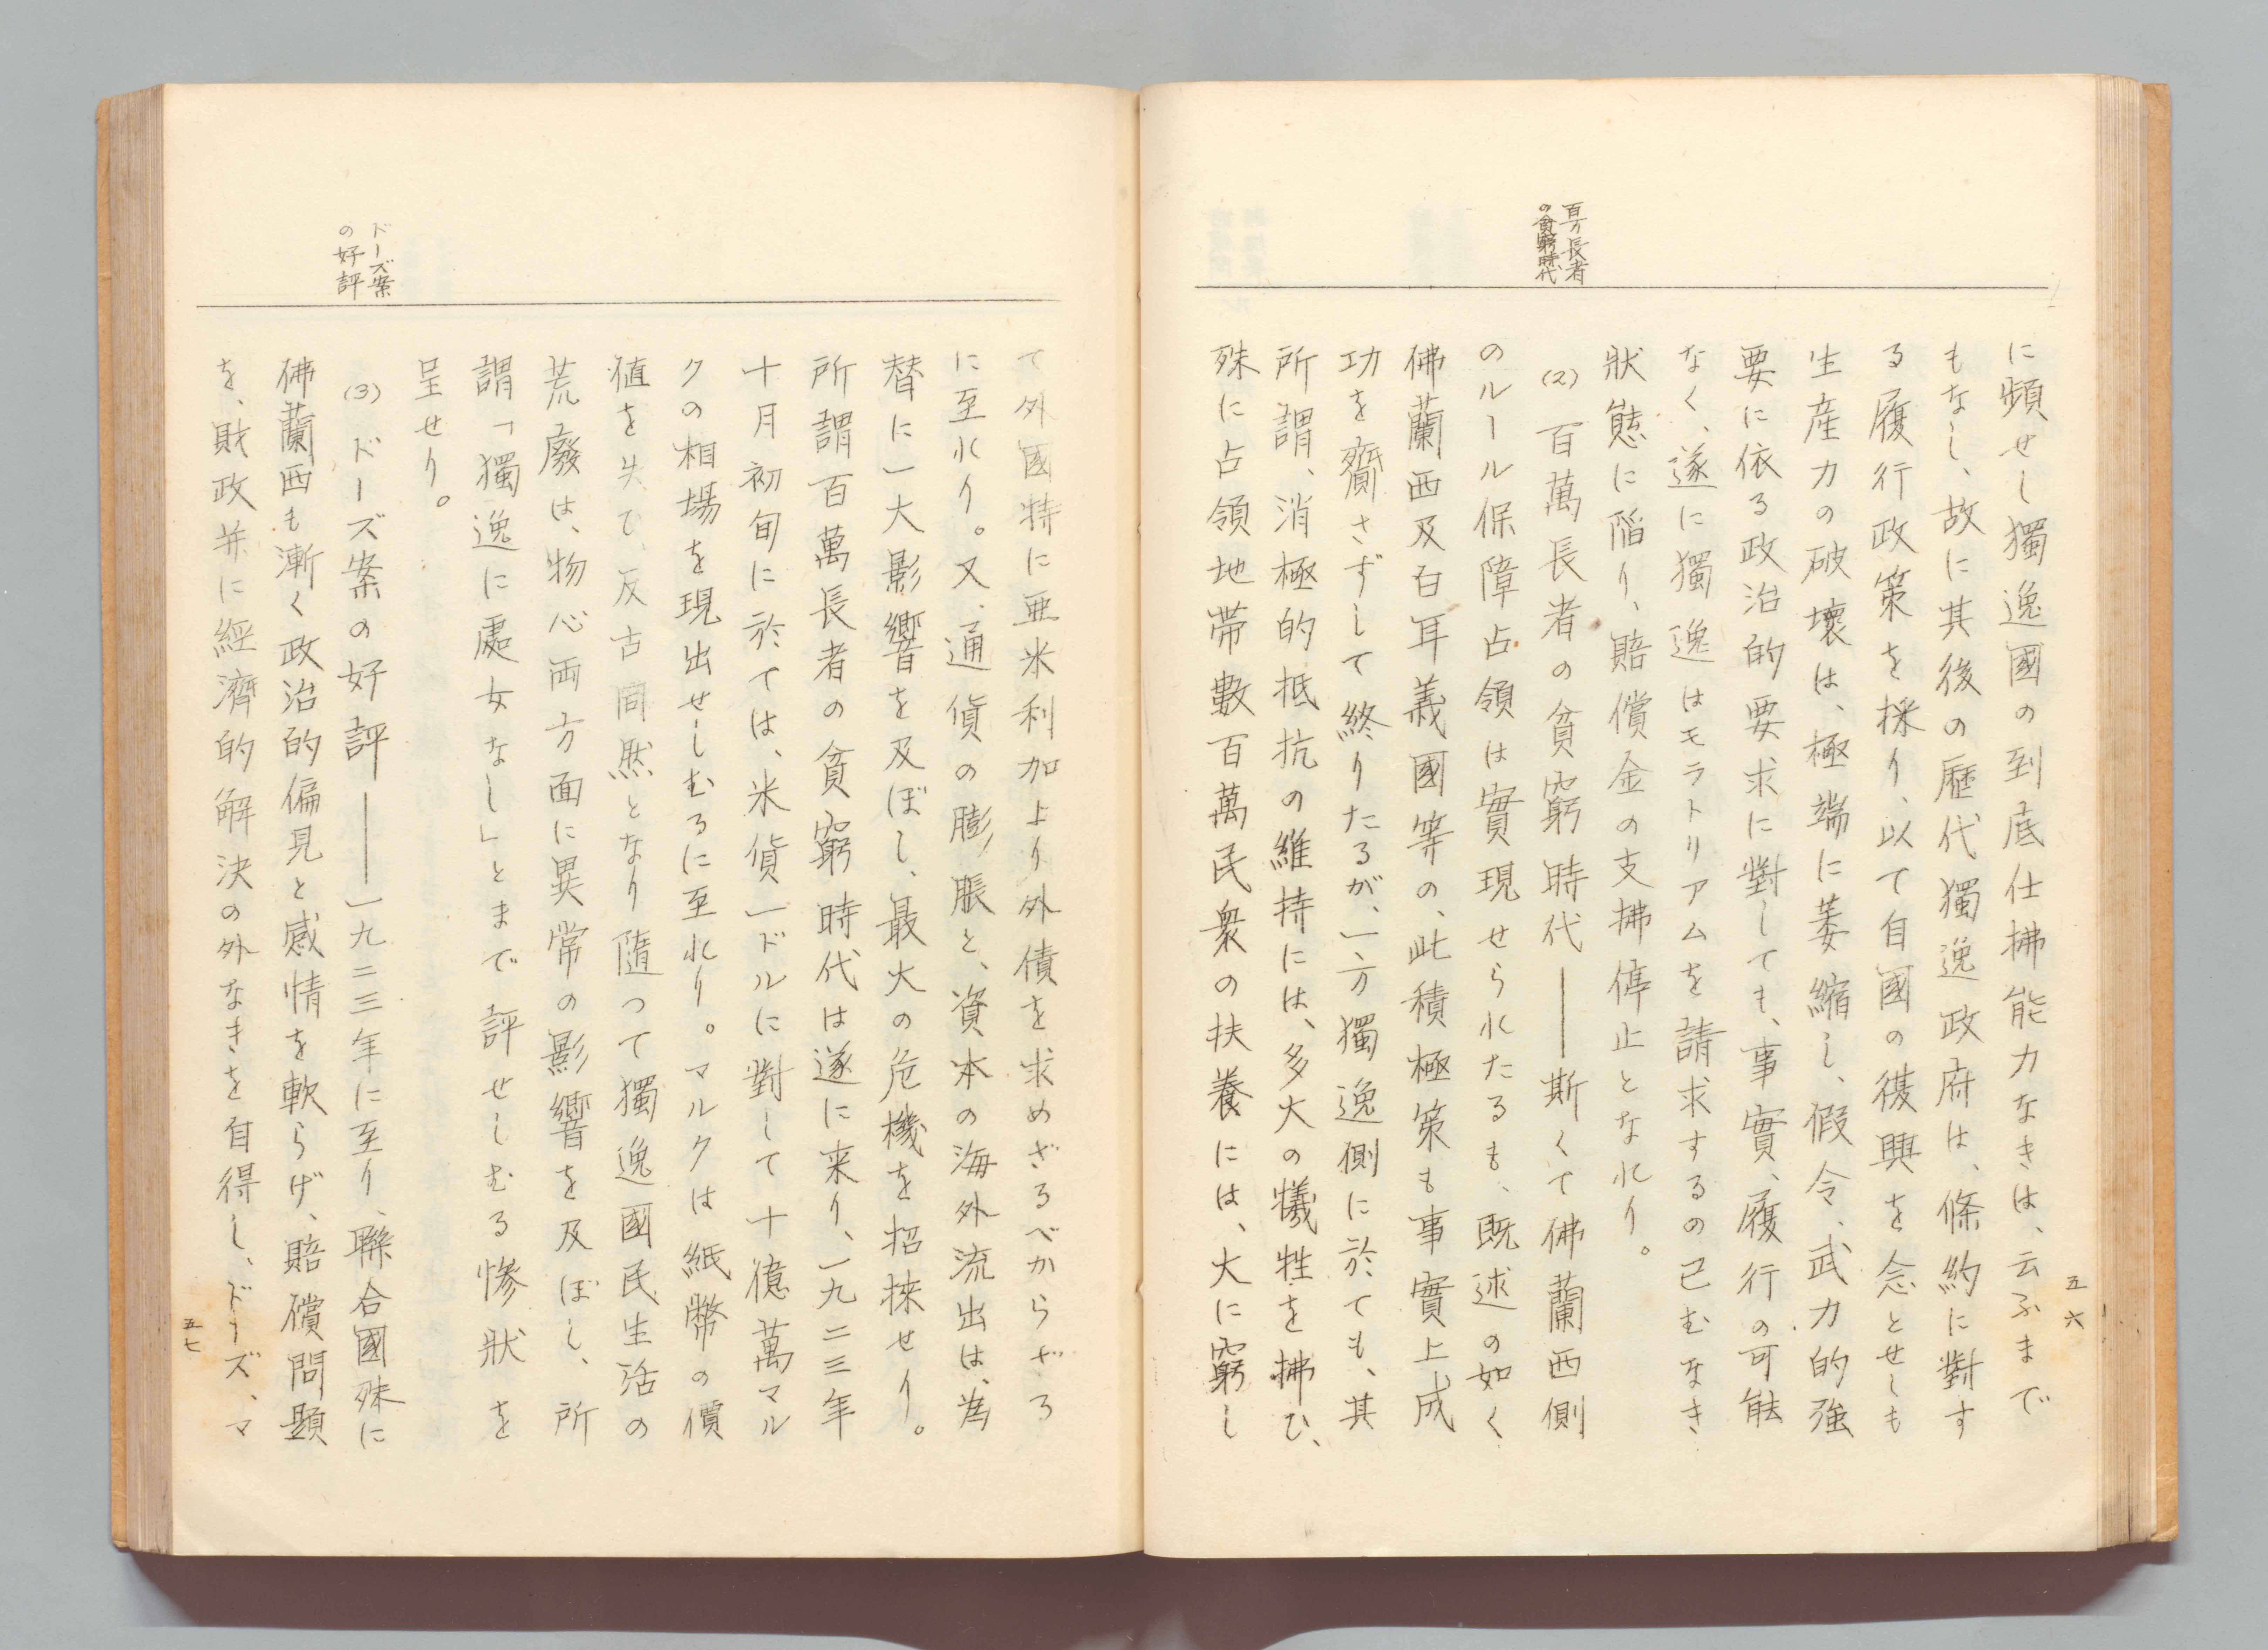 五六
百万長者
の貧窮時代
に頻せし獨逸國の到底仕拂能力なきは、云ふまで
もなし、故に其後の歴代獨逸政府は、條約に對す
る履行政策を採り、以て自國の復興を念とせしも
生産力の破壞は、極端に萎縮し、假令、武力的強
要に依る政治的要求に對しても、事實、履行の可能
なく、遂に獨逸はモラトリアムを請求するの已むなき
狀態に陥り、賠償金の支拂停止となれり。
(2) 百萬長者の貧窮時代――斯くて佛蘭西側
のルール保障占領は實現せられたるも、既述の如く
佛蘭西及白耳義國等の、此積極策も事實上成
功を齎さずして終りたるが、一方獨逸側に於ても、其
所謂、消極的抵抗の維持には、多大の犠牲を拂ひ、
殊に占領地帶數百萬民衆の扶養には、大に窮し
ドーズ案
の好評
て外國特に亜米利加より外債を求めざるべからざる
に至れり。又、通貨の膨脹と、資本の海外流出は、為
替に一大影響を及ぼし、最大の危機を招挾せり。
所謂百萬長者の貧窮時代は遂に来り、一九二三年
十月初旬に於ては、米貨一ドルに對して十億萬マル
クの相場を現出せしむるに至れり。マルクは紙幣の價
値を失て、反古同然となり隨つて獨逸國民生活の
荒廢は、物心両方面に異常の影響を及ぼし、所
謂「獨逸に處女なし」とまで評せしむる惨狀を
呈せり。
(3) ドーズ案の好評――一九二三年に至り、聯合國殊に
佛蘭西も漸く政治的偏見と感情を軟らげ、賠償問題
を、財政并に經濟的解決の外なきを自得し、ドーズ、マ
五七